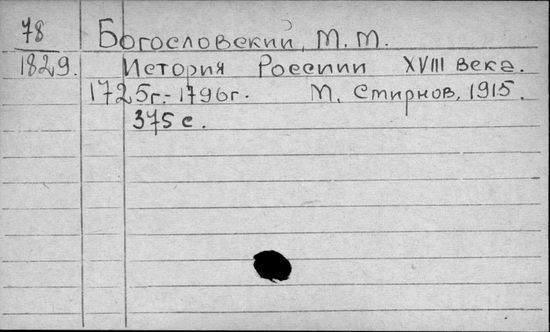 78
1829.
Богословский, М. М.
История России XVIII века.
1725г.-1796г. М. Смирнов, 1915.
375 с.